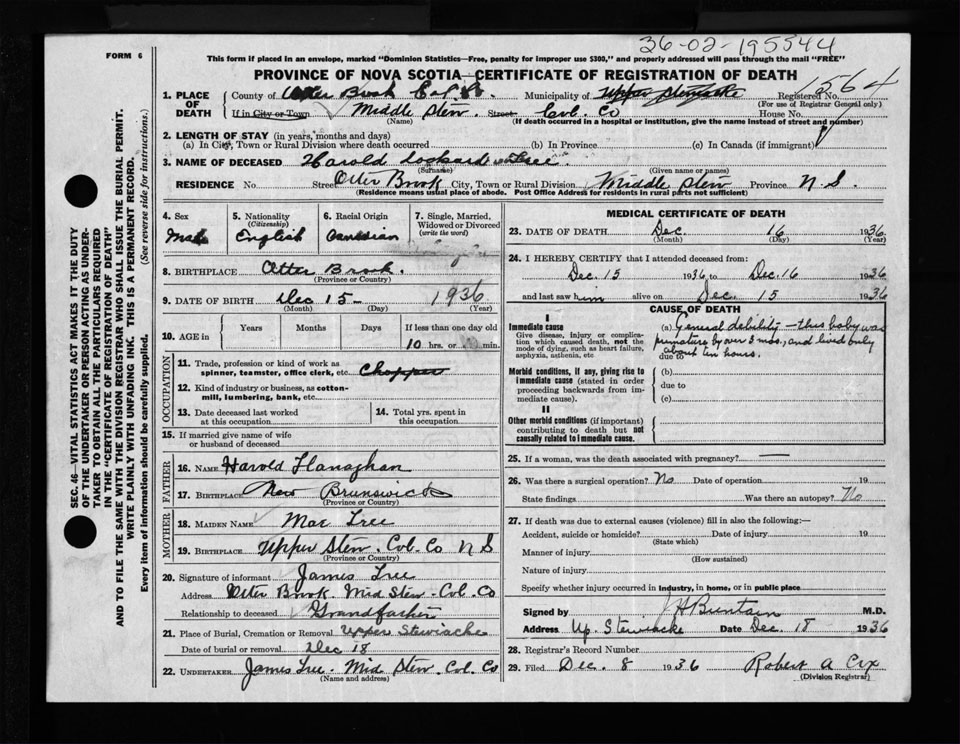 36-02-195544
FORM 6
This form if placed in an envelope, marked "Dominion Statistics—Free, penalty for improper use $300," and properly addressed will pass through the mail "FREE"
PROVINCE OF NOVA SCOTIA—CERTIFICATE OF REGISTRATION OF DEATH
1. PLACE OF DEATH County of Otter Brook Col. Co. Municipality of Upper Stewiacke Registered No. 1564
(For use of Registrar General only)
If in City or Town Middle Stew. Street Col. Co House No.
(Name) (If death occurred in a hospital or institution, give the name instead of street and number)
2. LENGTH OF STAY (in years, months and days)
(a) In City, Town or Rural Division where death occurred (b) In Province (c) In Canada (if immigrant)
3. NAME OF DECEASED Harold Lockard "Tree"
(Surname) (Given name or names)
RESIDENCE No. Street Otter Brook City, Town or Rural Division Middle Stew Province N.S.
(Residence means usual place of abode. Post Office Address for residents in rural parts not sufficient)
4. Sex
Male
5. Nationality
(Citizenship)
English
6. Racial Origin
Canadian
7. Single, Married, Widowed or Divorced
(write the word)
8. BIRTHPLACE Otter Brook.
(Province or Country)
9. DATE OF BIRTH Dec 15 1936
(Month) (Day) (Year)
10. AGE in Years Months Days If less than one day old
10 hrs. or min.
OCCUPATION
11. Trade, profession or kind of work as spinner, teamster, office clerk, etc. Chopper
12. Kind of industry or business, as cotton-mill, lumbering, bank, etc.
13. Date deceased last worked at this occupation
14. Total yrs. spent in this occupation
15. If married give name of wife or husband of deceased
FATHER
16. NAME Harold Flanaghan
17. BIRTHPLACE New Brunswick
MOTHER
18. MAIDEN NAME Mae Tree
19. BIRTHPLACE Upper Stew. Col. Co N S
(Province or Country)
20. Signature of informant James Tree
Address Otter Brook Mid Stew. Col. Co
Relationship to deceased Grandfather
21. Place of Burial, Cremation or Removal Upper Stewiacke
Date of burial or removal Dec 18
22. UNDERTAKER James Tree. Mid Stew Col. Co
(Name and address)
MEDICAL CERTIFICATE OF DEATH
23. DATE OF DEATH Dec. 16 1936
(Month) (Day) (Year)
24. I HEREBY CERTIFY that I attended deceased from:
Dec. 15 1936 to Dec. 16 1936
and last saw him alive on Dec. 15 1936
CAUSE OF DEATH
I
Immediate cause
Give disease, injury or complication which caused death, not the mode of dying, such as heart failure, asphyxia, asthenia, etc
(a) General debility — this baby was
premature by over 3 mos., and lived only
about ten hours.
due to
Morbid conditions, if any, giving rise to immediate cause (stated in order proceeding backwards from immediate cause).
(b)
due to
(c)
II
Other morbid conditions (if important) contributing to death but not causally related to immediate cause.
25. If a woman, was the death associated with pregnancy? —
26. Was there a surgical operation? No Date of operation 19
State findings Was there an autopsy? No
27. If death was due to external causes (violence) fill in also the following:—
Accident, suicide or homicide? Date of injury 19
(State which)
Manner of injury
(How sustained)
Nature of injury
Specify whether injury occurred in industry, in home, or in public place
Signed by J H Buntain M.D.
Address Up. Stewiacke Date Dec. 18 1936
28. Registrar's Record Number
29. Filed Dec. 8 1936 Robert A Cox
(Division Registrar)
SEC. 46—VITAL STATISTICS ACT MAKES IT THE DUTY
OF THE UNDERTAKER OR PERSON ACTING AS UNDER-
TAKER TO OBTAIN ALL THE PARTICULARS REQUIRED
IN THE "CERTIFICATE OF REGISTRATION OF DEATH"
AND TO FILE THE SAME WITH THE DIVISION REGISTRAR WHO SHALL ISSUE THE BURIAL PERMIT.
WRITE PLAINLY WITH UNFADING INK. THIS IS A PERMANENT RECORD.
Every item of information should be carefully supplied. (See reverse side for instructions.)